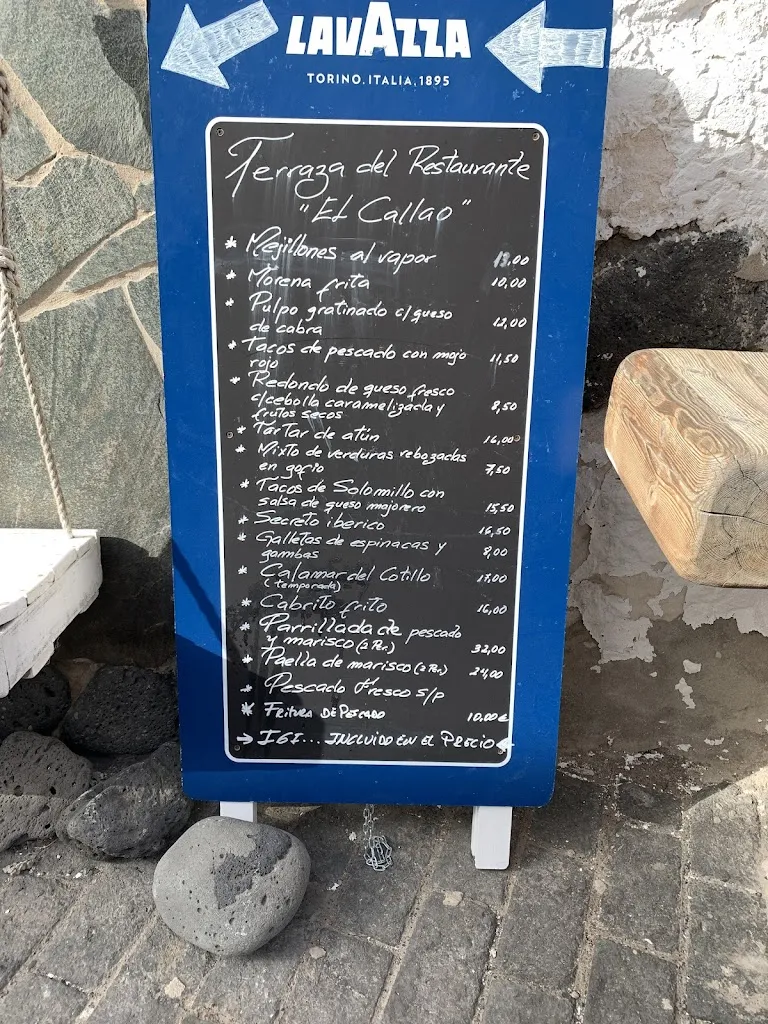 LAVAZZA
TORINO, ITALIA, 1895
Terraza del Restaurante
"El Callao"
* Mejillones al vapor 13,00
* Morena frita 10,00
* Pulpo gratinado c/ queso
de cabra 12,00
* Tacos de pescado con mojo
rojo 11,50
* Redondo de queso fresco
c/cebolla caramelizada y
frutos secos 8,50
* TarTar de atún 16,00
* Mixto de verduras rebozadas
en gofio 7,50
* Tacos de Solomillo con
salsa de queso majorero 15,50
* Secreto iberico 16,50
* Galletas de espinacas y
gambas 8,00
* Calamar del Cotillo 17,00
(temporada)
* Cabrito frito 16,00
* Parrillada de pescado
y marisco (2 Per.) 32,00
* Paella de marisco (2 Per.) 24,00
* Pescado Fresco s/p
* FRITURA DE PESCADO 10,00€
→ IGI... INCLUIDO EN EL PRECIO ←